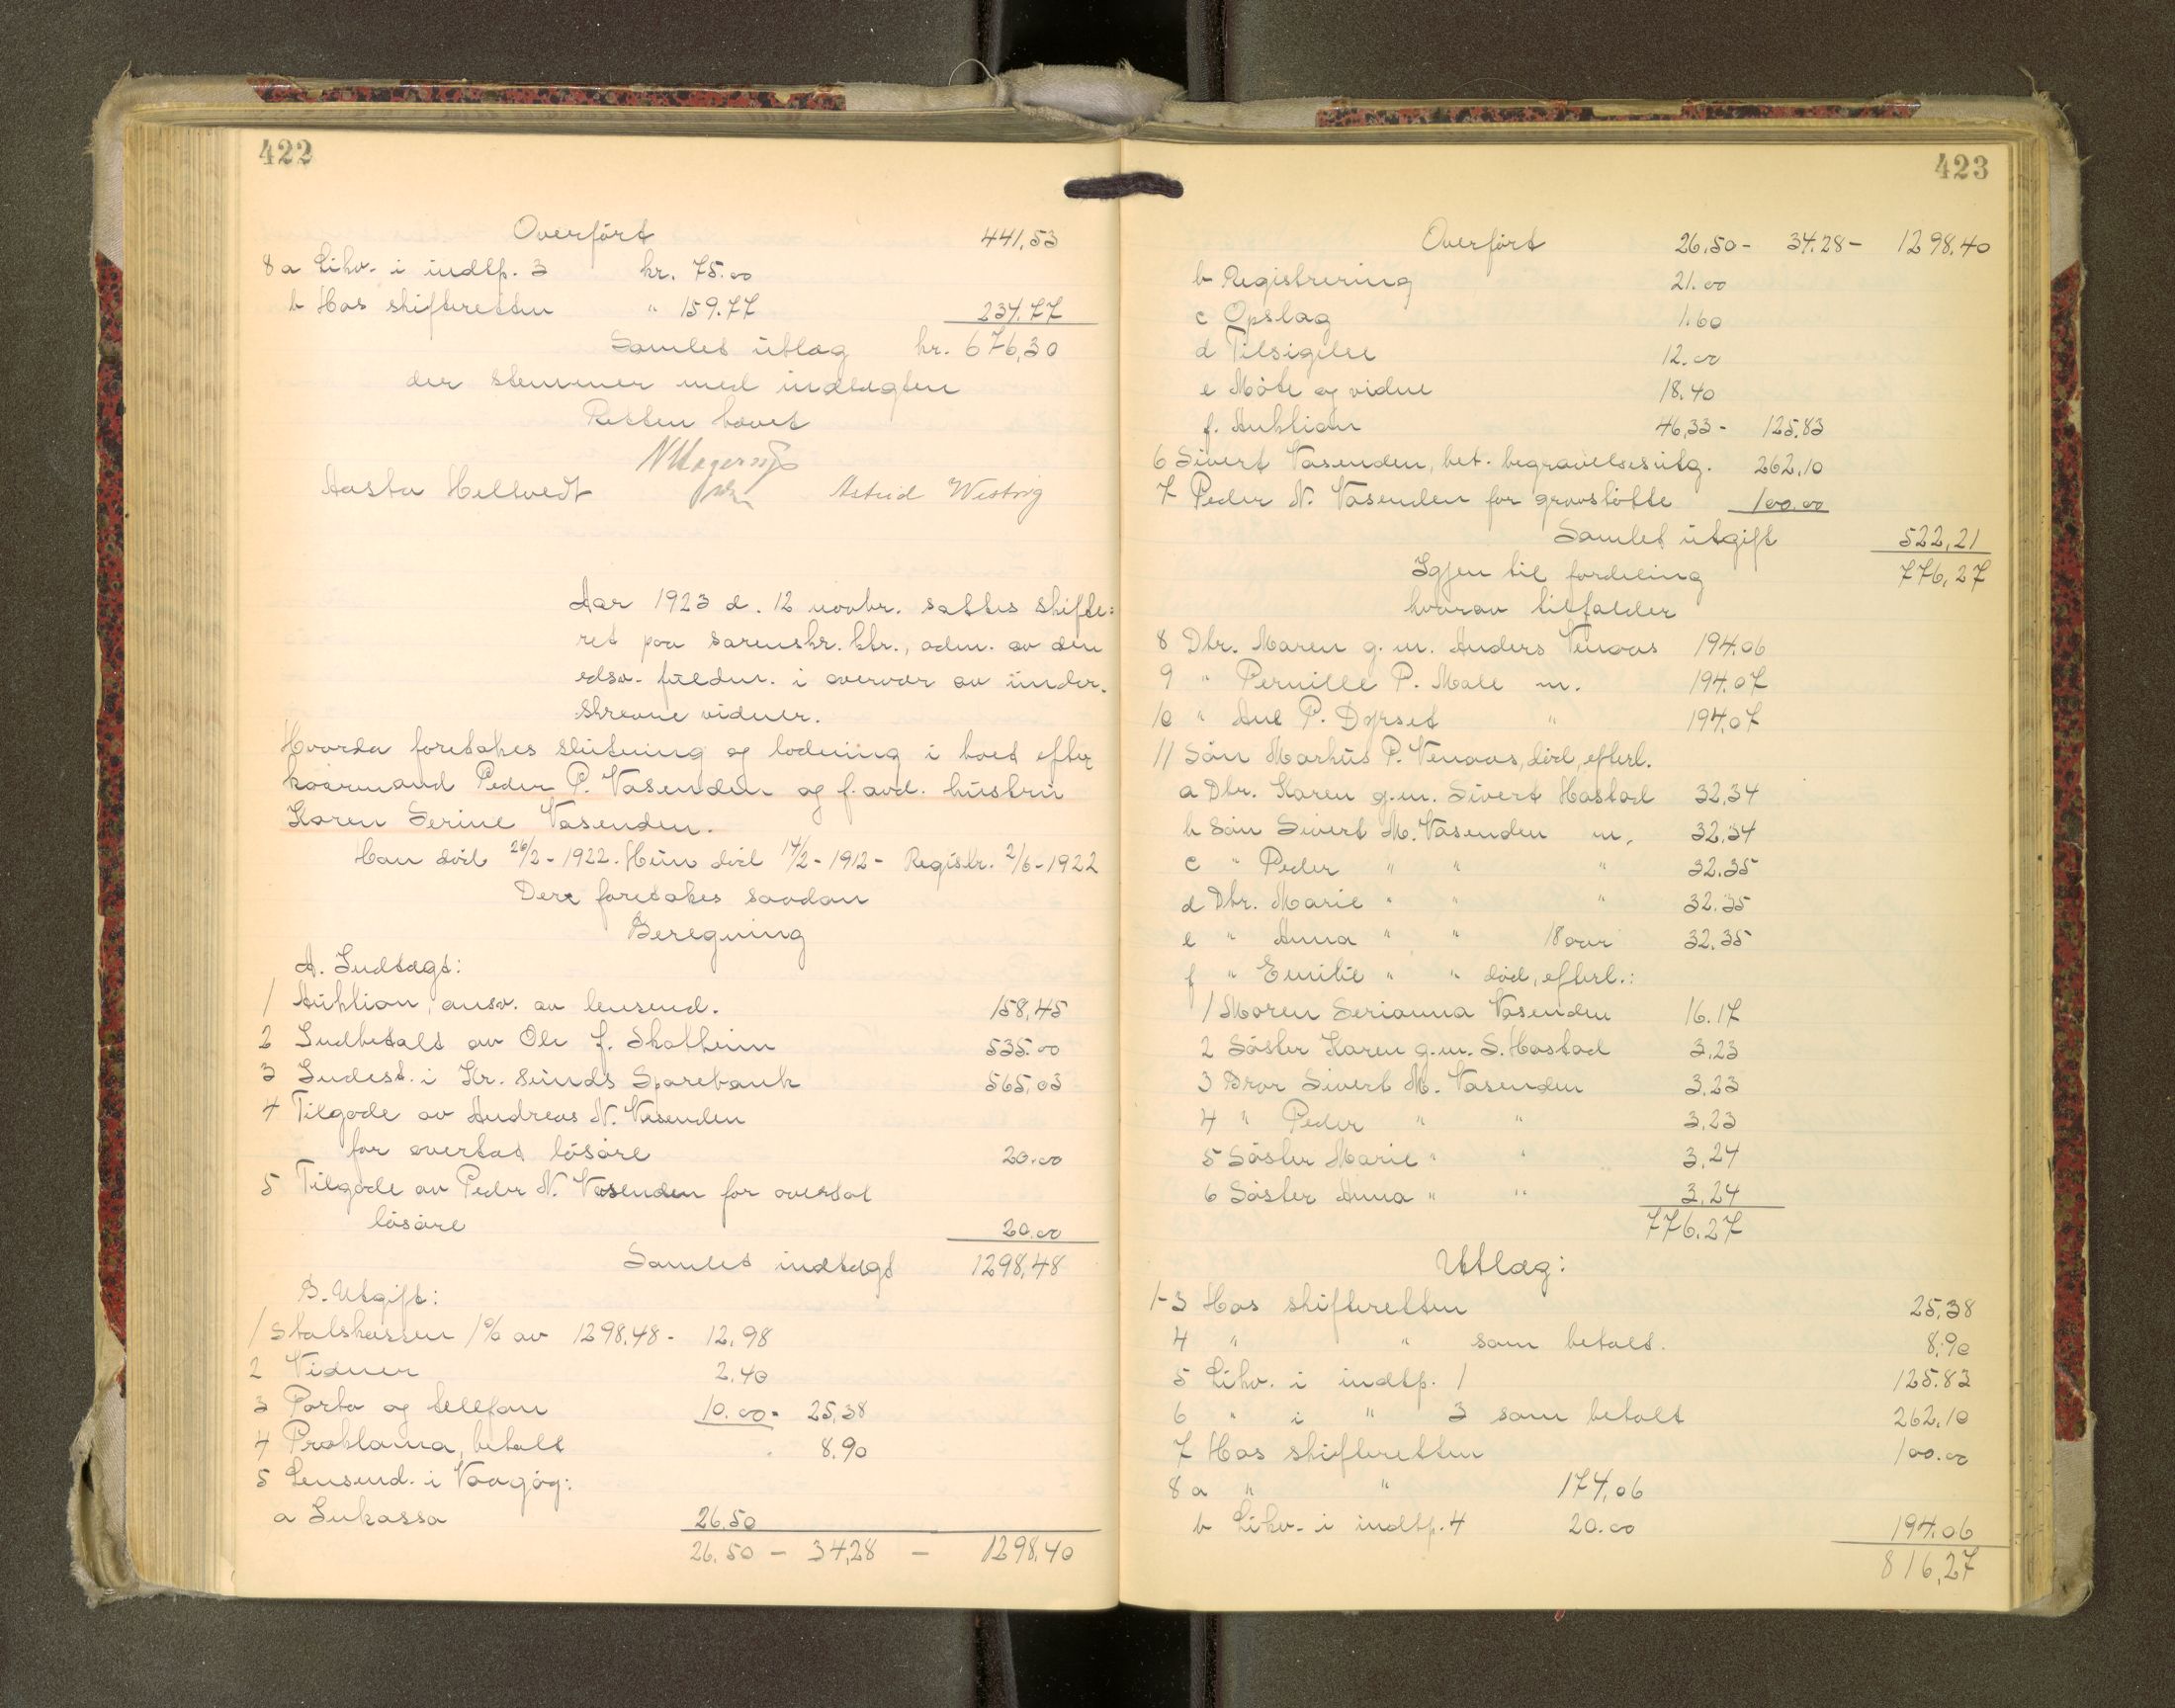 422
Overført 441,53
8 a Likv. i indtp. 3 kr. 75.00
b Hos skifteretten " 159.77 234.77
Samlet utlæg kr. 676,30
der stemmer med indtægten
Retten hævet
Aasta Hellvedt Astrid Westvig
Aar 1923 d. 12 novbr. sattes skifte=
ret paa sorenskr. ktr., adm. av den
edsv. fuldm. i overvær av under-
skrevne vidner.
Hvorda foretokes slutning og lodning i boet efter
kaarmand Peder P. Vasenden og f. avd. hustru
Karen Serine Vasenden.
Han död 26/2 - 1922. Hun död 14/2 - 1912 - Registr. 2/6 - 1922
Der foretokes saadan
Beregning
A. Indtægt:
1 Auktion, ansv. av lensmd. 158,45
2 Indbetalt av Ole J. Skotheim 535.00
3 Indest. i Kr. sunds Sparebank 565,03
4 Tilgode av Andreas N. Vasenden
for overtat lösöre 20.00
5 Tilgode av Peder N. Vasenden for overtat
lösöre 20.00
Samlet indtægt 1298,48
B. Utgift:
1 Statskassen 1% av 1298.48 - 12.98
2 Vidner 2.40
3 Porto og telefon 10.00 - 25,38
4 Proklama, betalt 8.90
5 Lensmd. i Vaagög:
a Inkasso 26.50
26.50 - 34,28 - 1298,40
423
Overfört 26,50 - 34.28 - 1298,40
b Registrering 21.00
c Opslag 1.60
d Tilsigelse 12.00
e Möte og vidne 18.40
f. Auktion 46,33 - 125,83
6 Sivert Vasenden, bet. begravelsesutg. 262,10
7 Peder N. Vasenden for gravstötte 100.00
Samlet utgift 522,21
Igjen til fordeling 776,27
hvorav tilfalder
8 Dtr. Maren g. m. Anders Venaas 194.06
9 " Pernille P. Male m. 194.07
10 " Ane P. Dyrset " 194,07
11 Sön Markus P. Venaas, död, efterl.
a Dtr. Karen g. m. Sivert Hastad 32,34
b Sön Sivert M. Vasenden m. 32,34
c " Peder " " " 32.35
d Dtr. Marie " " " 32.35
e " Anna " " 18 aar 32.35
f " Emilie " " död, efterl.:
1 Moren Serianna Vasenden 16.17
2 Söster Karen g. m. S. Hastad 3,23
3 Bror Sivert M. Vasenden 3.23
4 " Peder " " 3,23
5 Söster Marie " " 3,24
6 Söster Anna " " 3,24
776.27
Utlæg:
1-3 Hos skifteretten 25,38
4 " " som betalt. 8.90
5 Likv. i indtp. 1 125.83
6 " i " 3 som betalt 262,10
7 Hos skifteretten 100.00
8 a " " 174,06
b Likv. i indtp. 4 20.00 194.06
816,27